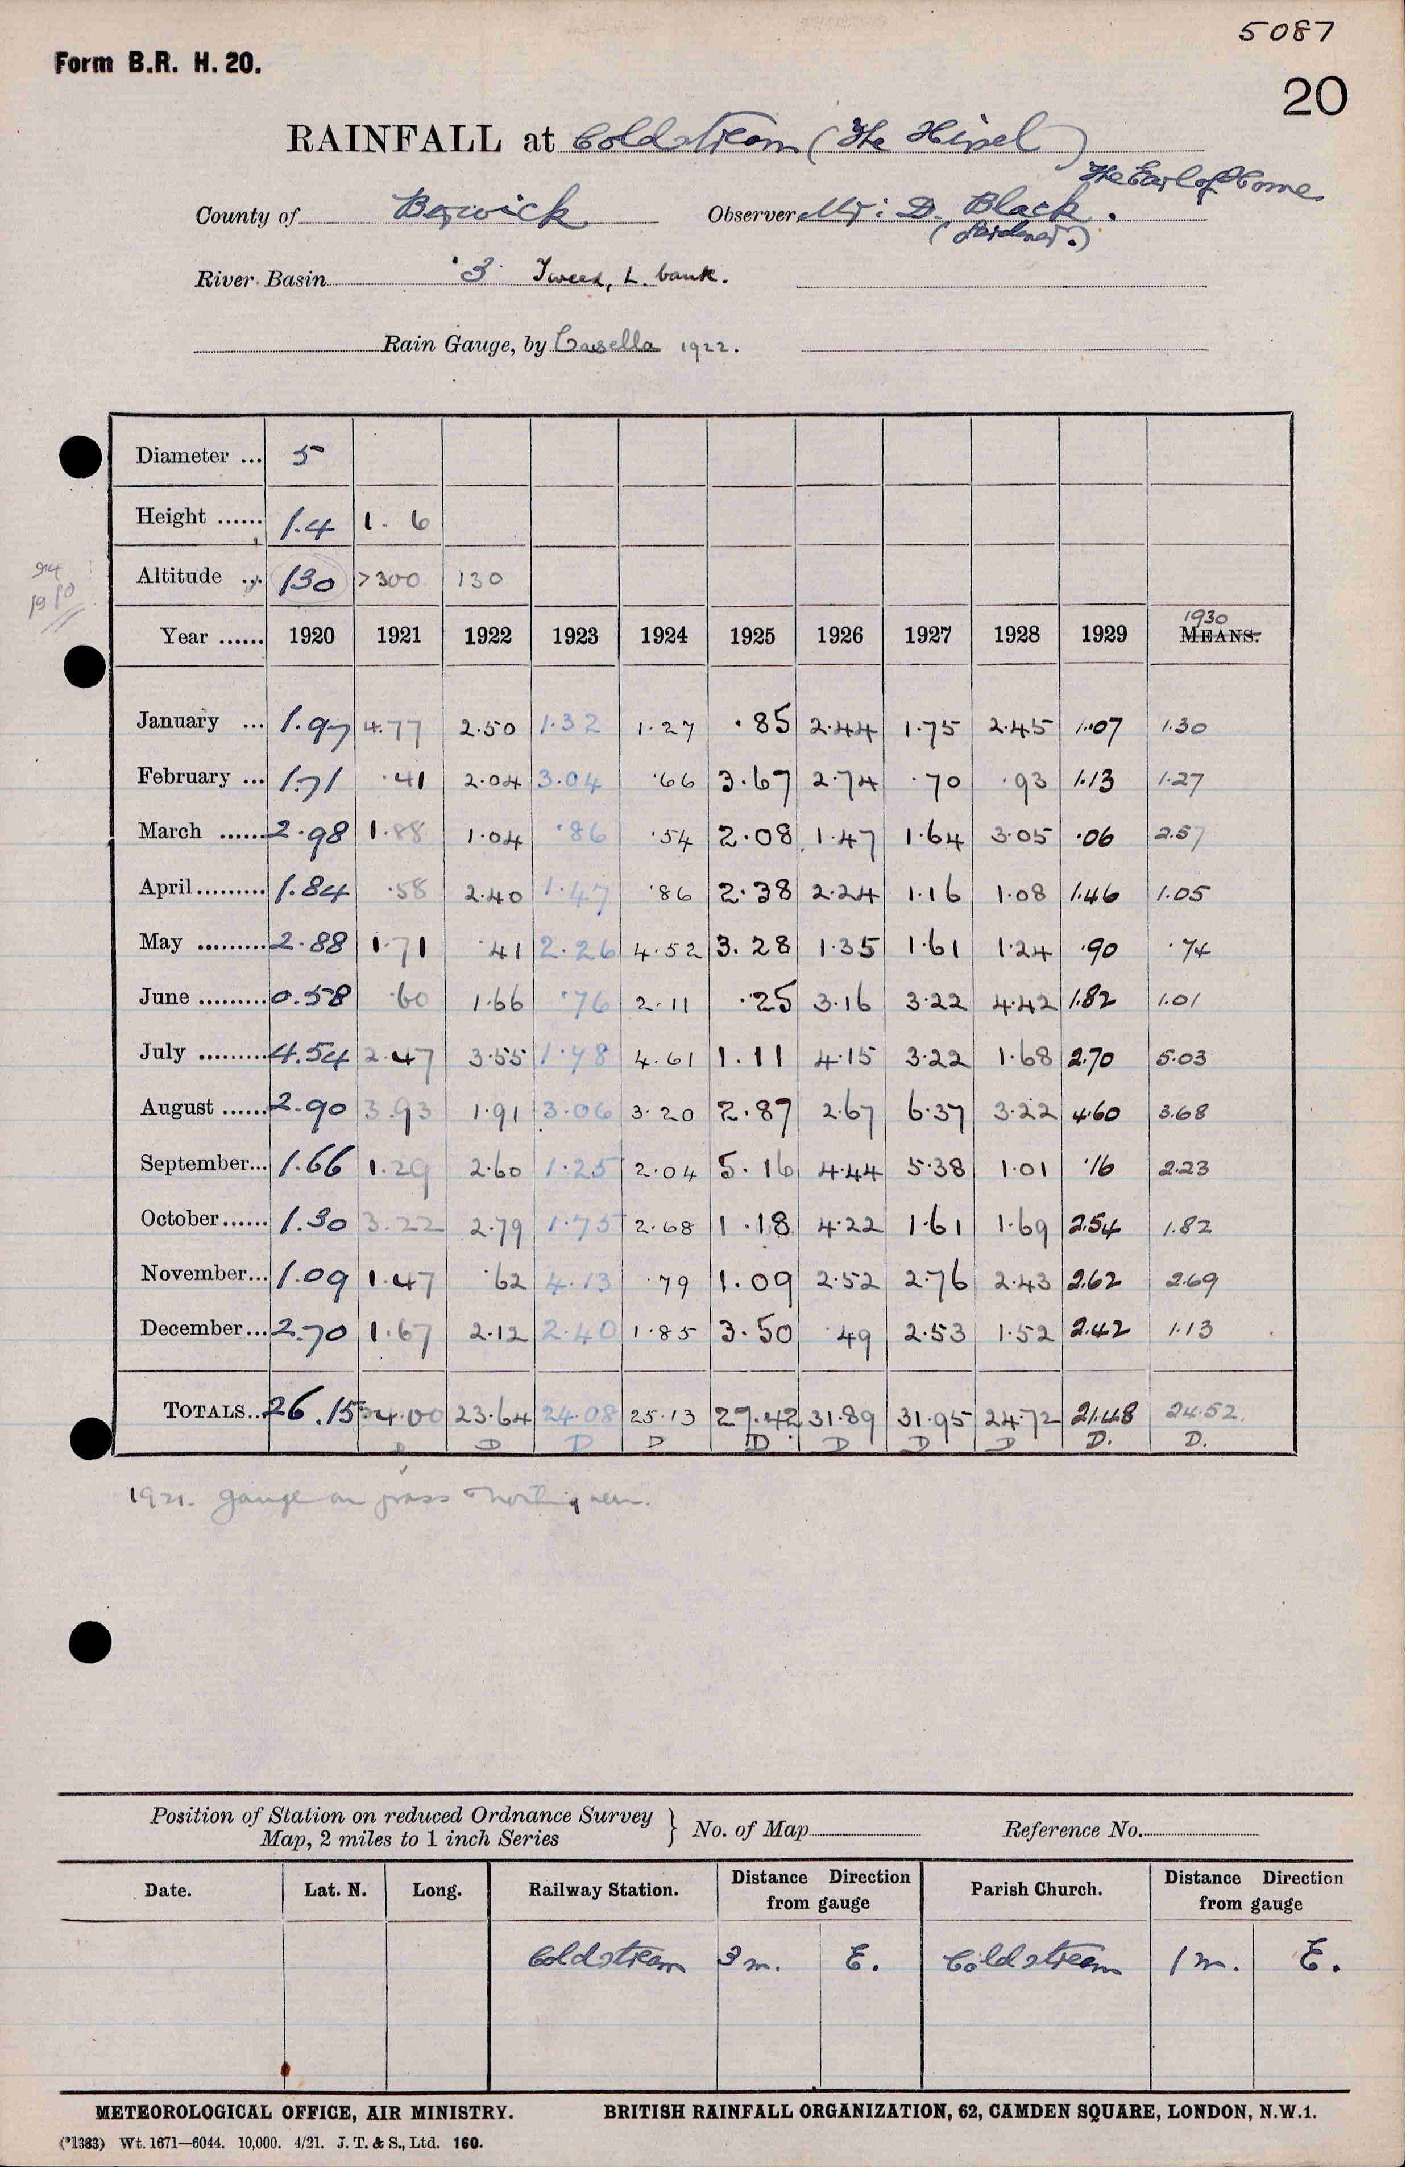 5087
Form B.R. H. 20.
20
RAINFALL at Coldstream (The Hirsel)
The Earl of Home
County of Berwick Observer, Mr: D. Black.
(Gardener.)
River Basin 3 Tweed, L. bank.
Rain Gauge, by Casella 1922.
Diameter ... 5
Height ...... 1.4 1. 6
Altitude ... 130 >300 130
1930
Year ...... 1920 1921 1922 1923 1924 1925 1926 1927 1928 1929 MEANS.
January ... 1.97 4.77 2.50 1.32 1.27 .85 2.44 1.75 2.45 1.07 1.30
February ... 1.71 .41 2.04 3.04 .66 3.67 2.74 .70 .93 1.13 1.27
March ...... 2.98 1.88 1.04 .86 .54 2.08 1.47 1.64 3.05 .06 2.57
April ......... 1.84 .58 2.40 1.47 .86 2.38 2.24 1.16 1.08 1.46 1.05
May ......... 2.88 1.71 .41 2.26 4.52 3.28 1.35 1.61 1.24 .90 .74
June ......... 0.58 .60 1.66 .76 2.11 .25 3.16 3.22 4.42 1.82 1.01
July ......... 4.54 2.47 3.55 1.78 4.61 1.11 4.15 3.22 1.68 2.70 5.03
August ...... 2.90 3.93 1.91 3.06 3.20 2.87 2.67 6.37 3.22 4.60 3.68
September... 1.66 1.29 2.60 1.25 2.04 5.16 4.44 5.38 1.01 .16 2.23
October...... 1.30 3.22 2.79 1.75 2.68 1.18 4.22 1.61 1.69 2.54 1.82
November... 1.09 1.47 .62 4.13 .79 1.09 2.52 2.76 2.43 2.62 2.69
December ... 2.70 1.67 2.12 2.40 1.85 3.50 .49 2.53 1.52 2.42 1.13
TOTALS.. 26.15 24.00 23.64 24.08 25.13 27.42 31.89 31.95 24.72 21.48 24.52
D D D D D D D D D. D.
1921. gauge on grass
Position of Station on reduced Ordnance Survey
Map, 2 miles to 1 inch Series } No. of Map Reference No.
Date. Lat. N. Long. Railway Station. Distance Direction from gauge Parish Church. Distance Direction from gauge
Coldstream 3 m. E. Coldstream 1 m. E.
METEOROLOGICAL OFFICE, AIR MINISTRY. BRITISH RAINFALL ORGANIZATION, 62, CAMDEN SQUARE, LONDON, N.W.1.
(*1383) Wt. 1671—6044. 10,000. 4/21. J. T. & S., Ltd. 160.